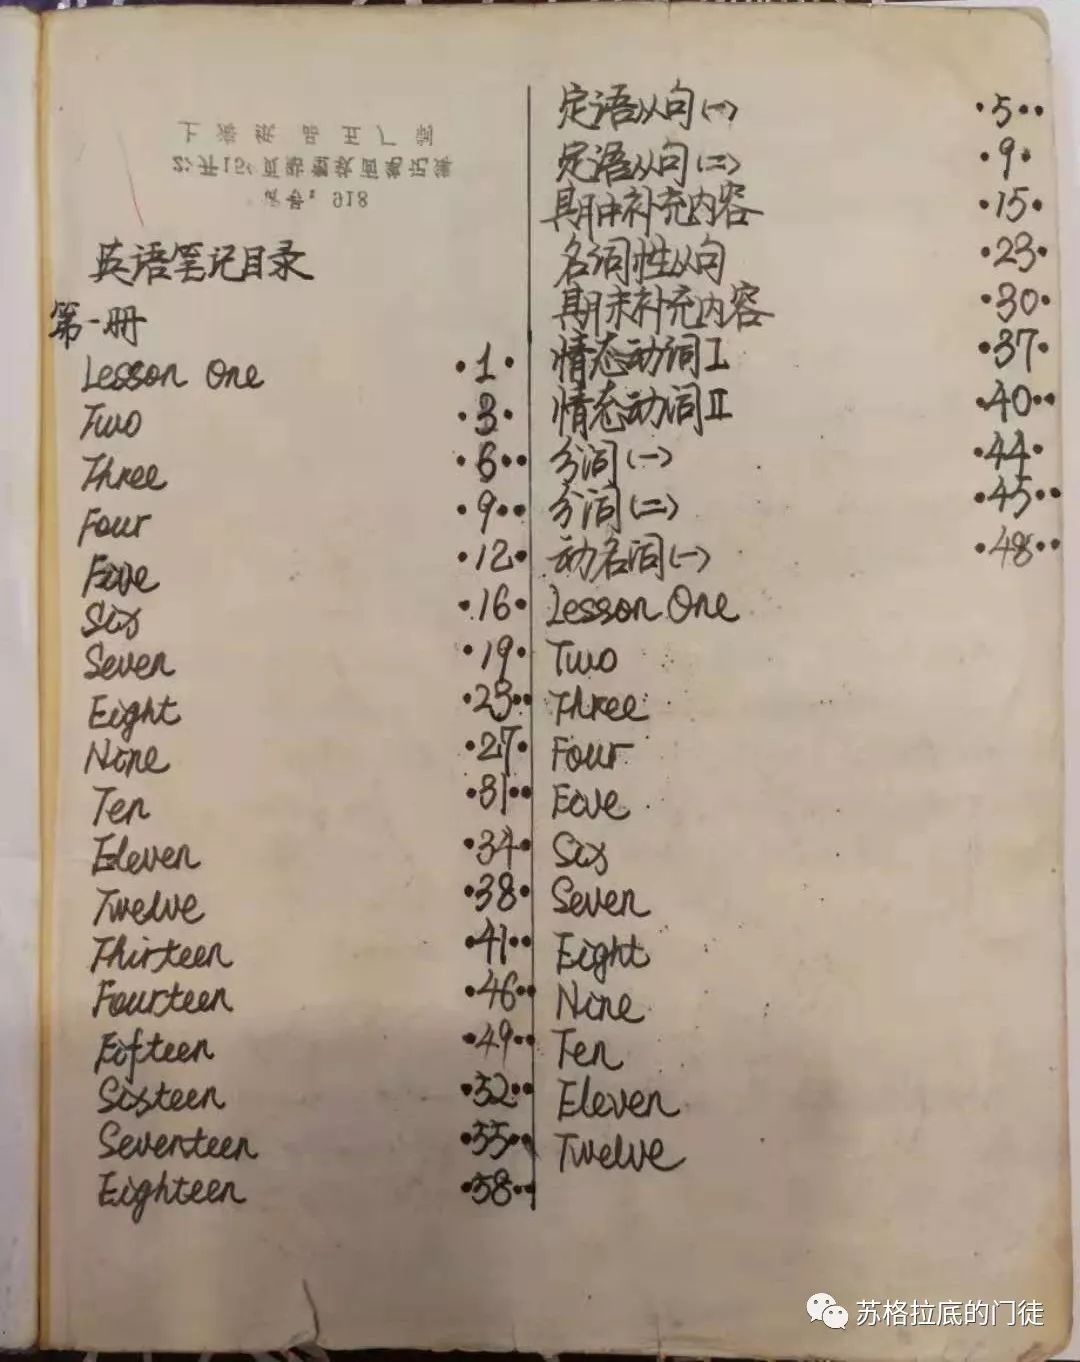 上海纸品五厂制
英语笔记目录
第一册
Lesson One ·1·
Two ·3·
Three ·6··
Four ·9··
Five ·12·
Six ·16·
Seven ·19·
Eight ·23··
Nine ·27·
Ten ·31··
Eleven ·34·
Twelve ·38·
Thirteen ·41··
Fourteen ·46··
Fifteen ·49··
Sixteen ·52··
Seventeen ·55··
Eighteen ·58··
定语从句(一) ·5··
定语从句(二) ·9·
期中补充内容 ·15·
名词性从句 ·23·
期末补充内容 ·30·
情态动词Ⅰ ·37·
情态动词Ⅱ ·40··
分词(一) ·44·
分词(二) ·45··
动名词(一) ·48··
Lesson One
Two
Three
Four
Five
Six
Seven
Eight
Nine
Ten
Eleven
Twelve
苏格拉底的门徒